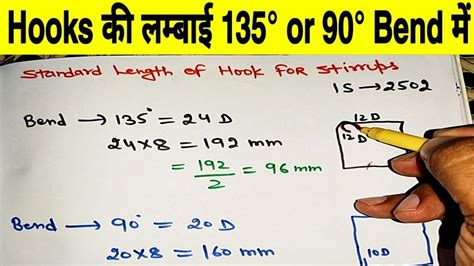 Hooks की लम्बाई 135° or 90° Bend में
Standard Length of Hook For Stirrups
IS → 2502
Bend → 135° = 24 D
24 × 8 = 192 mm
= 192/2 = 96 mm
12 D
12 D
Bend → 90° = 20 D
20 × 8 = 160 mm
10 D